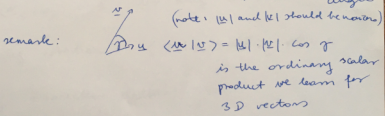 v
(note: |u| and |v| should be norms)
remark: γ u ⟨u|v⟩ = |u| · |v| · cos γ
is the ordinary scalar
product we learn for
3D vectors